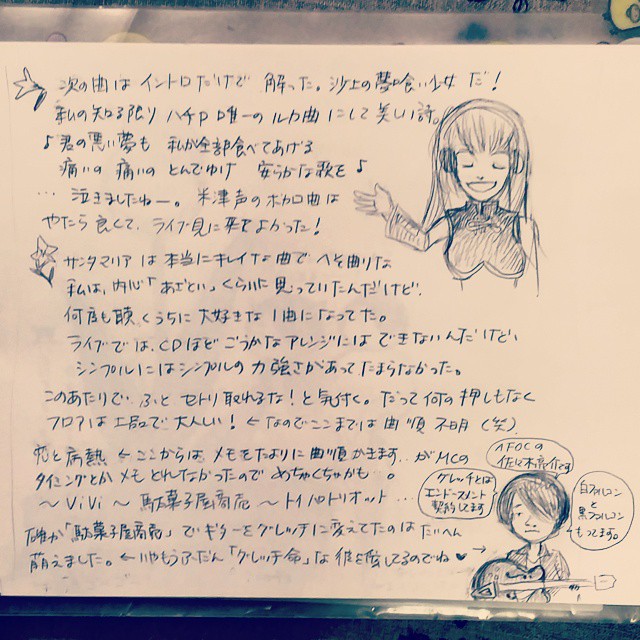 次の曲は イントロだけで 解った。沙上の夢喰い少女 だ!
私の知る限り ハチP 唯一の ルカ曲 にして 美しい詩。
♪君の悪い夢も 私が全部食べてあげる
痛いの 痛いの とんでゆけ 安らかな歌を♪
… 泣きましたねー。米津声のボカロ曲は
やたら良くて、ライブ見に来てよかった!
サンタマリア は 本当に キレイな曲で へそ曲りな
私は、内心「あざとい」くらいに思っていたんだけど、
何度も聴くうちに 大好きな1曲になってた。
ライブでは、CDほど ごうかなアレンジには できないんだけど、
シンプルにはシンプルの力強さがあってたまらなかった。
このあたりで、ふと セトリ取れるな!と気付く。だって何の押しもなく
フロアは 大人しい! ← なのでここまでは 曲順 不明 (笑)
花と病熱 ← ここからは メモをたよりに曲順かきます…がMCの
タイミングとか メモ とれなかったので めちゃくちゃかも。
〜ViVi〜 駄菓子屋商売 〜 トイパトリオット …
確か「駄菓子屋商売」でギターをグレッチに変えてたのは たいへん
萌えました。← いやもうふだん「グレッチ命」な 彼を愛してるのでね♥ →
^FOCの
佐々木亮介です
グレッチとは
エンドースメント
契約してます
白ファルコン
と
黒ファルコン
もってます。